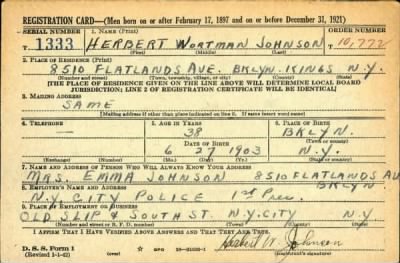 REGISTRATION CARD—(Men born on or after February 17, 1897 and on or before December 31, 1921)
SERIAL NUMBER 1. NAME (Print) ORDER NUMBER
T 1333 HERBERT WORTMAN JOHNSON 10,772
2. PLACE OF RESIDENCE (Print)
8510 FLATLANDS AVE. BKLYN. KINGS N.Y.
(Number and street) (Town, township, village, or city) (County) (State)
[THE PLACE OF RESIDENCE GIVEN ON THE LINE ABOVE WILL DETERMINE LOCAL BOARD
JURISDICTION; LINE 2 OF REGISTRATION CERTIFICATE WILL BE IDENTICAL]
3. MAILING ADDRESS
SAME
[Mailing address if other than place indicated on line 2. If same insert word same]
4. TELEPHONE 5. AGE IN YEARS 6. PLACE OF BIRTH
— 38 BKLYN.
DATE OF BIRTH
6 27 1903 N.Y.
(Exchange) (Number) (Mo.) (Day) (Yr.) (State or country)
7. NAME AND ADDRESS OF PERSON WHO WILL ALWAYS KNOW YOUR ADDRESS
MRS. EMMA JOHNSON 8510 FLATLANDS AV
BKLYN
8. EMPLOYER'S NAME AND ADDRESS
N.Y. CITY POLICE 1st Prec.
9. PLACE OF EMPLOYMENT OR BUSINESS
OLD SLIP & SOUTH ST. N.Y. CITY N.Y.
(Number and street or R. F. D. number) (Town) (County) (State)
I AFFIRM THAT I HAVE VERIFIED ABOVE ANSWERS AND THAT THEY ARE TRUE.
D. S. S. Form 1
(Revised 1-1-42)
GPO
Herbert W. Johnson